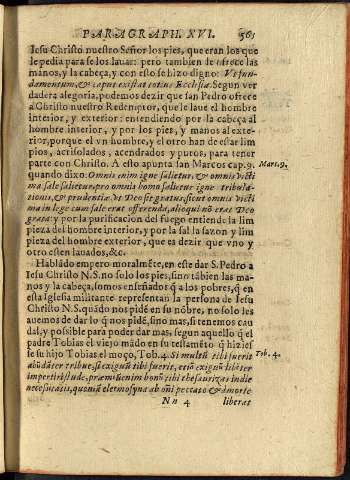 PARAGRAPH. XVI. 565
Iesu Christo nuestro Señor los pies, que eran los que
le pedia para se los lauar: pero tambien le ofrece las
manos, y la cabeça, y con esto se hizo digno: Vt fun-
damentum, & caput existat totius Ecclesiæ. Segun ver
dadera alegoria, podemos dezir que san Pedro ofrece
a Christo nuestro Redemptor, que le laue el hombre
interior, y exterior: entendiendo por la cabeça al
hombre interior, y por los pies, y manos al exte-
rior, porque el vn hombre, y el otro han de estar lim
pios, acrisolados, acendrados y puros, para tener
parte con Christo. A esto apunta san Marcos cap. 9.
Marc. 9.
quando dixo: Omnis enim igne salietur, & omnis victi
ma sale salietur, pro omnis homo salietur igne tribula-
tionis, & prudentiæ, vt Deo sit gratus, sicut omnis victi
ma in lege cum sale erat offerenda, alioqui nõ erat Deo
grata: y por la purificacion del fuego entiende la lim
pieza del hombre interior, y por la sal la sazon y lim
pieza del hombre exterior, que es dezir que vno y
otro esten lauados, &c.
Hablãdo empero moralmẽte, en este dar S. Pedro a
Iesu Christo N. S. no solo los pies, sino tãbien las ma-
nos y la cabeça, somos enseñados q̃ a los pobres, q̃ en
esta Iglesia militante representan la persona de Iesu
Christo N.S. quãdo nos pidẽ en su nõbre, no solo les
auemos de dar lo q̃ nos pidẽ, sino mas, si tenemos cau
dal, y possible para poder dar mas, segun aquello q̃ el
padre Tobias el viejo mãdo en su testamẽto q̃ hizies
se su hijo Tobias el moço, Tob. 4. Si multũ tibi fuerit
Tob. 4.
abũdãter tribue, si exiguũ tibi fuerit, etiã exiguũ libẽter
impertiri stude, præmiũ enim bonũ tibi thesaurizas in die
necessitatis, quoniã eleemosyna ab omi peccato & à morte
N n 4 liberat